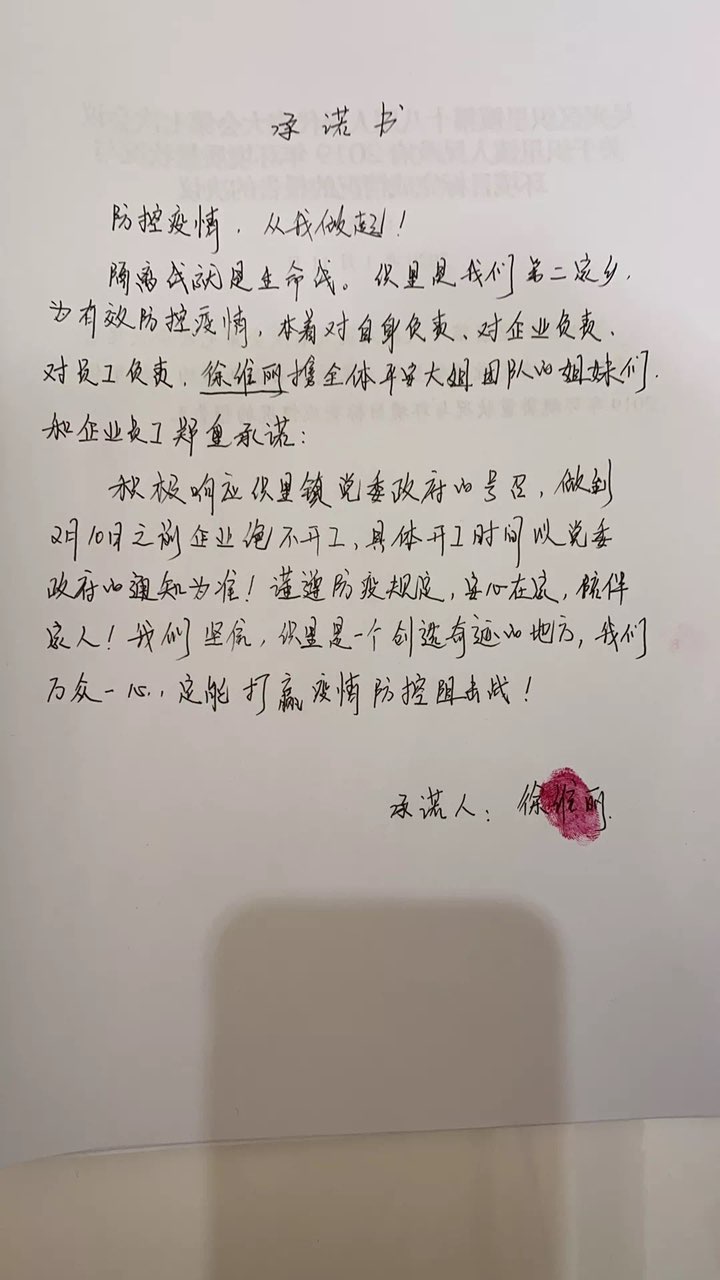 承诺书
防控疫情，从我做起！
隔离战就是生命战。织里是我们第二家乡，
为有效防控疫情，本着对自身负责、对企业负责、
对员工负责，徐维丽携全体平安大姐团队的姐妹们，
和企业员工郑重承诺：
积极响应织里镇党委政府的号召，做到
2月10日之前企业绝不开工，具体开工时间以党委
政府的通知为准！谨遵防疫规定，安心在家，陪伴
家人！我们坚信，织里是一个创造奇迹的地方，我们
万众一心，定能打赢疫情防控阻击战！
承诺人：徐维丽